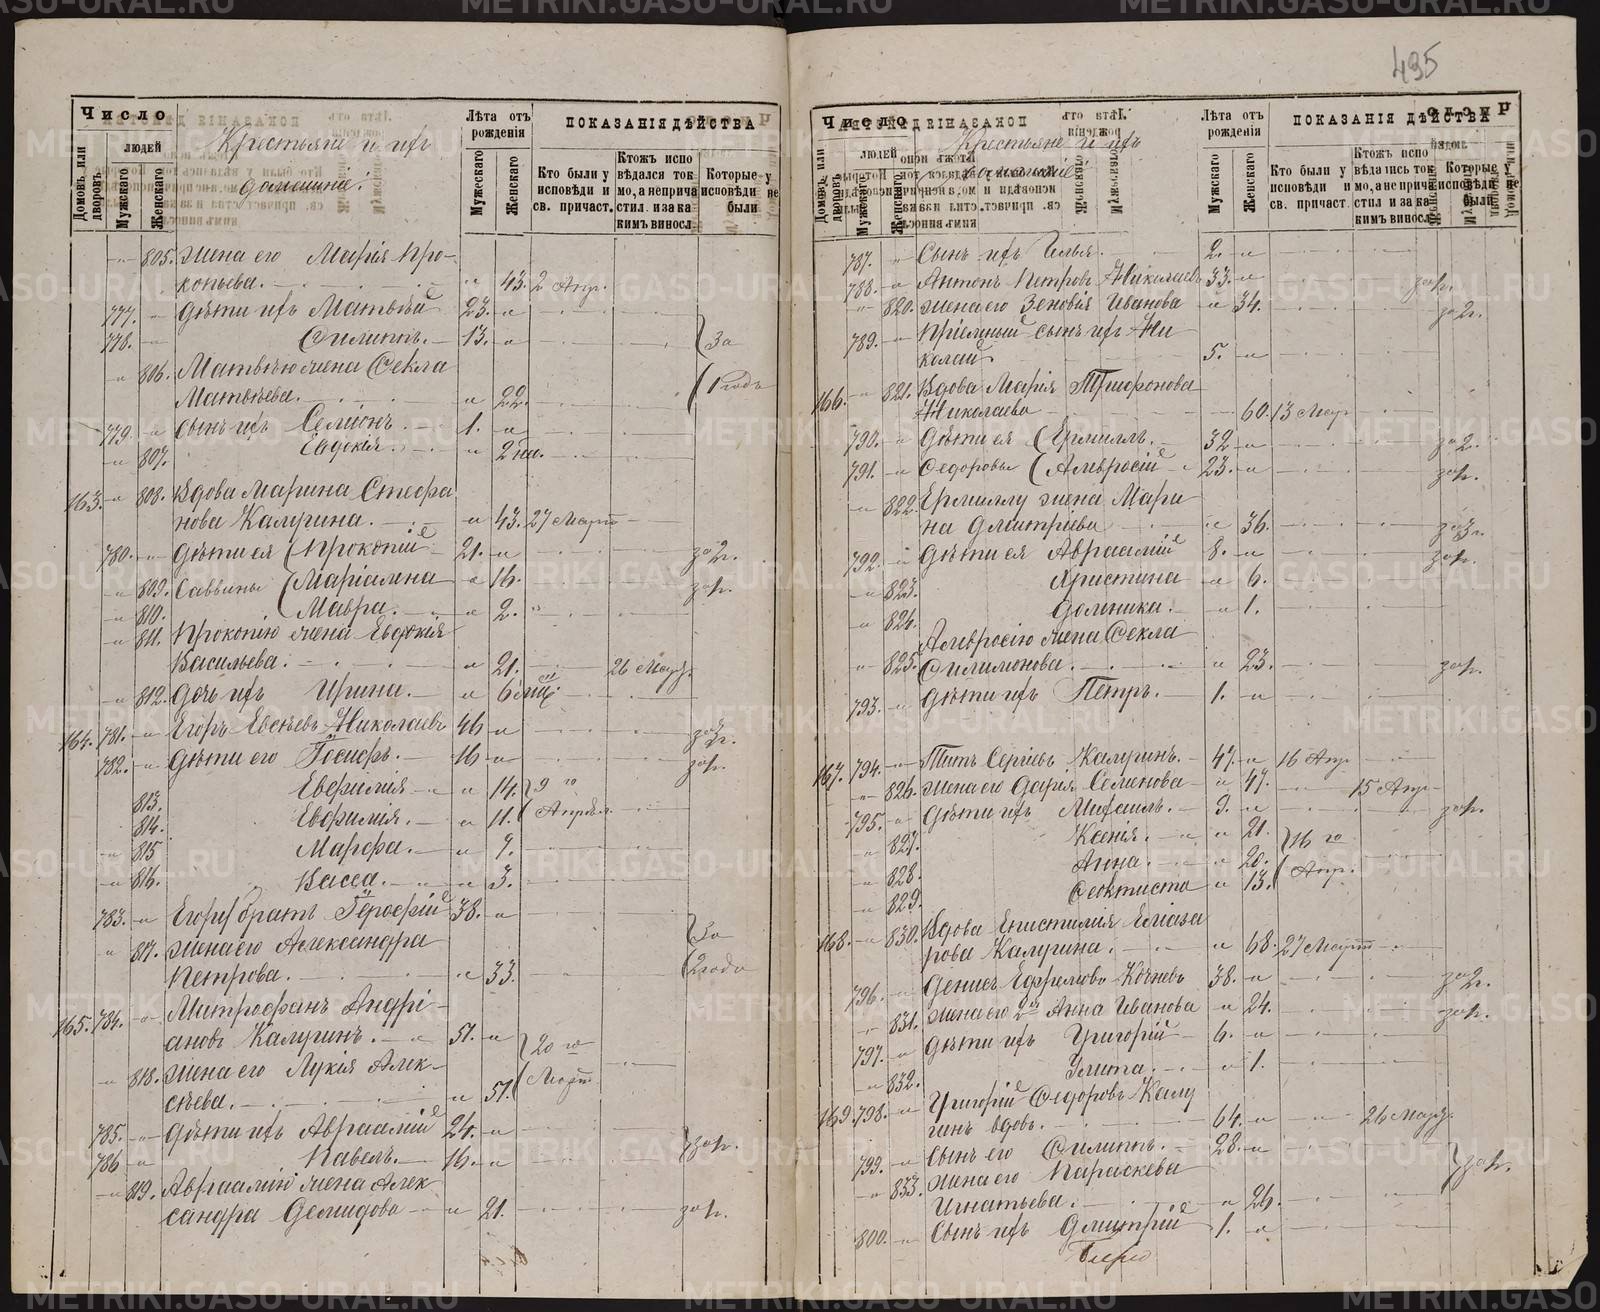 495
Число
людей
Домовъ или дворовъ.
Мужскаго
Женскаго
Крестьяне и ихъ
домашніе.
Лѣта отъ рожденія
Мужескаго
Женскаго
ПОКАЗАНІЯ ДѢЙСТВА
Кто были у исповѣди и св. причаст.
Ктожъ исповѣдался токмо, а не причастил. и за какимъ винослов.
Которые у исповѣди не были
805. жена его Марія Про-
копьева. 43. 2 Апр.
777. Дѣти ихъ Матвѣй 23.
778. Филиппъ. 13. За
806. Матвѣю жена Ѳекла
Матвѣева. 22. 1 годъ
779. Сынъ ихъ Семіонъ. 1.
807. Евдокія. 2 нед.
163. 808. Вдова Марина Стефа
нова Калугина. 43. 27 Марта
780. Дѣти ея Прокопій 21. за 2г.
809. Саввины Маріамна 16. за 1г.
810. Мавра. 2.
811. Прокопію жена Евдокія
Васильева. 21. 26 Мар.
812. Дочь ихъ Ирина. 6 мѣс.
164. 781. Егоръ Евсѣевъ Николаевъ 46 за 3г.
782. Дѣти его Іосифъ. 16 за 1г.
813. Евфимія 14. 9 го
814. Евфимія. 11. Апрѣля
815 Марфа. 7.
816. Васса. 3.
783. Егору братъ Іероѳей 38.
817. жена его Александра За
Петрова. 33. 2 года
165. 784. Митрофанъ Андрі-
ановъ Калугинъ. 51. 20 го
818. жена его Лукія Алек-
сѣева. 51. Март
785. Дѣти ихъ Авраамій 24.
786 Павелъ. 16. за 1г.
819. Авраамію жена Алек
сандра Демидова 21. за 1г.
Число
людей
Домовъ или дворовъ.
Мужескаго
Женскаго
Крестьяне и ихъ
домашніе
Лѣта отъ рожденія
Мужескаго
Женскаго
ПОКАЗАНІЯ ДѢЙСТВА
Кто были у исповѣди и св. причаст.
Ктожъ исповѣдались токмо, а не причастил. и за какимъ винослов.
Которые у исповѣди не были
787. Сынъ ихъ Илья. 2.
788. Антонъ Петровъ Николаевъ 33. за 1г.
820. жена его Зеновія Иванова 34. за 2г.
789. Пріемный сынъ ихъ Ни
колай 5.
166. 821. Вдова Марія Трифонова
Николаева 60. 13 Мар
790. Дѣти ея Ермиллъ. 32 за 2.
791. Ѳедоровы Амвросій 23. за 1г.
822. Ермиллу жена Мари
на Дмитріева 36. за 3г.
792. Дѣти ея Авраамій 8. за 1г.
823. Христина 6.
824. Домника. 1.
Амвросію жена Ѳекла
825. Филимонова. 23. за 1г.
793. Дѣти ихъ Петръ. 1.
167. 794. Титъ Сергіевъ Калугинъ. 47. 16 Апр
826. жена его Дарія Семенова 47. 15 Апр
795. Дѣти ихъ Михаилъ. 9. за 1г.
827. Ксенія. 21. 16 го
828. Анна. 20. Апр.
829. Ѳеоктиста 13.
168. 830. Вдова Епистимія Елиаза
рова Калугина. 68. 27 Март
796. Денисъ Ефремовъ Кочневъ 38. за 2г.
831. жена его 2я Анна Иванова 24. за 1г.
797. Дѣти ихъ Григорій 6.
832. Улита. 1.
169 798. Григорій Ѳедоровъ Калу
гинъ вдовъ. 64. 26 Мар.
799. Сынъ его Филиппъ. 28.
833. жена его Параскева за 1г.
Игнатьева. 26.
800. Сынъ ихъ Дмитрій 1.
METRIKI.GASO-URAL.RU